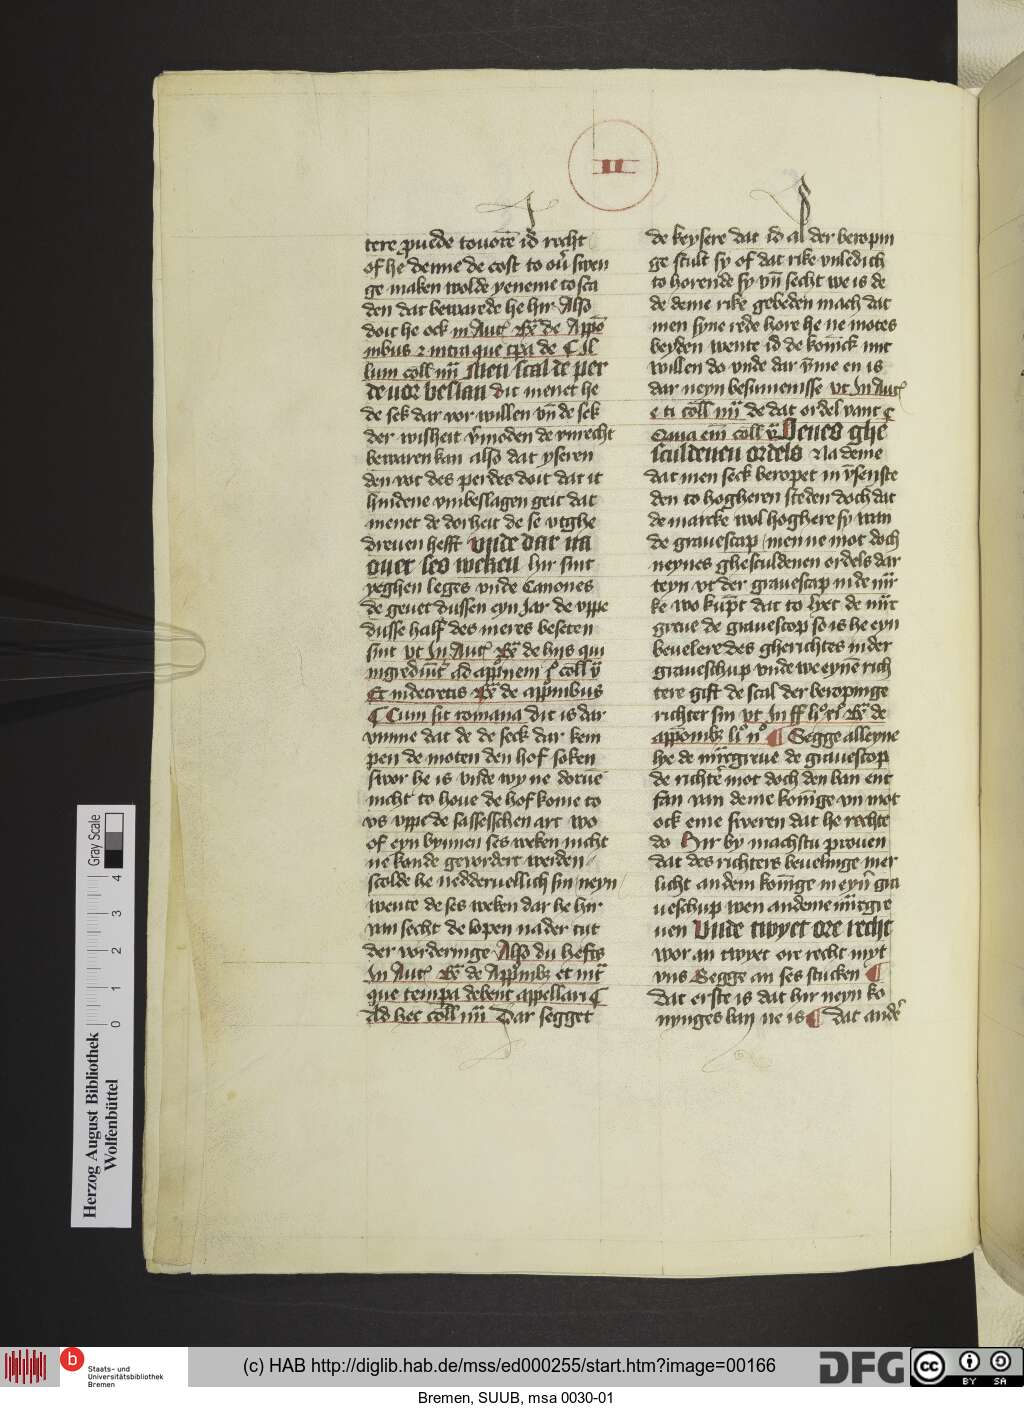 II
tere puede touorē id recht
of he denne de cost to ou͛ swen
ge maken wolde yeneme to sca
den dat bewarede he hir Also
doit he ock in Auct͛ Rx͛ de Appō
nibus ⁊ intra que tpa de ¶ Il
lum coll iiij Men scal de per
de uor beslan dit menet he
de sek dar vor willen vn̄ de sek
der wisheit v͛moden de vnrecht
bewaren kan also dat yseren
den vot des perdes doit dat it
hindene vmbeslagen geit dat
menet de dorheit de se vtghe
dreuen hefft Vnde dar na
ouer ses weken hir sint
yeghen leges vnde Canones
de geuet dussen eyn Jar de vppe
dusse half des meres beseten
sint vt In Auct͛ Rx͛ de hijs qui
ingrediūt͛ ad appōnem s͛ coll v͛
Et in decretis Rx͛ de appōnibus
¶ Cum sit romana dit is dar
vmme dat de de seck dar kem
pen de moten den hof soken
swor he is vnde wy ne doruē
nicht to houe de hof kome to
vs vppe de sassesschen art wo
of eyn bynnen ses weken nicht
ne konde gevordert werden
scolde he nedderuellich sin neyn
wente de ses weken dar he hir
van secht de lopen na der tut
der vorderinge Also du hefts
In Auct͛ Rx͛ de Appōnibꝫ et int͛
que tempa debent appellari ¶
Ad hec coll iiij Dar segget
de keysere dat id al der beropin
ge scult sy of dat rike vnledich
to horende sy vn̄ secht we is de
de deme rike gebeden mach dat
men syne rede hore he ne motes
beyden wente id de konīck mit
willen do vnde dar v͛me en is
dar neyn besumenisse vt In Auct͛
e ti coll iiij de dat ordel vant ¶
Qaua em̄ coll v͛ Jeneo ghe
sculdenen ordels Na deme
dat men seck beropet in v͛senste
den to hogheren steden doch dat
de marcke wol hoghere sy wan
de grauescap men ne mot doch
neynes ghesculdenen ordels dar
teyn vt der grauescap in de mr͛
ke wo kūpt dat to hyet de mr͛c
greue de grauescop so is he eyn
beuelere des gherichtes in der
graueschup vnde we eynē rich
tere gift de scal der beropinge
richter sin vt In ff li͛ xl͛ Rx͛ de
appōnibꝫ li͛ n͛ ¶ Segge alleyne
hye de mr͛cgreue de grauescop
de richtē mot doch den ban ent
fan van deme konīge vn mot
ock eme sweren dat he rechte
do Hir by machstu prouen
dat des richters beuelinge mer
licht an dem konīge in eyn͛ gra
ueschup wen an deme mr͛cgre
uen Vnde twyet ore recht
wor an twyet ore recht myt
vns Segge an ses stucken ¶
Dat erste is dat hir neyn ko
nynges ban ne is ¶ dat and͛e
Herzog August Bibliothek
Wolfenbüttel
Gray Scale
0 1 2 3 4
Staats- und
Universitätsbibliothek
Bremen
(c) HAB http://diglib.hab.de/mss/ed000255/start.htm?image=00166
DFG
cc BY SA
Bremen, SUUB, msa 0030-01